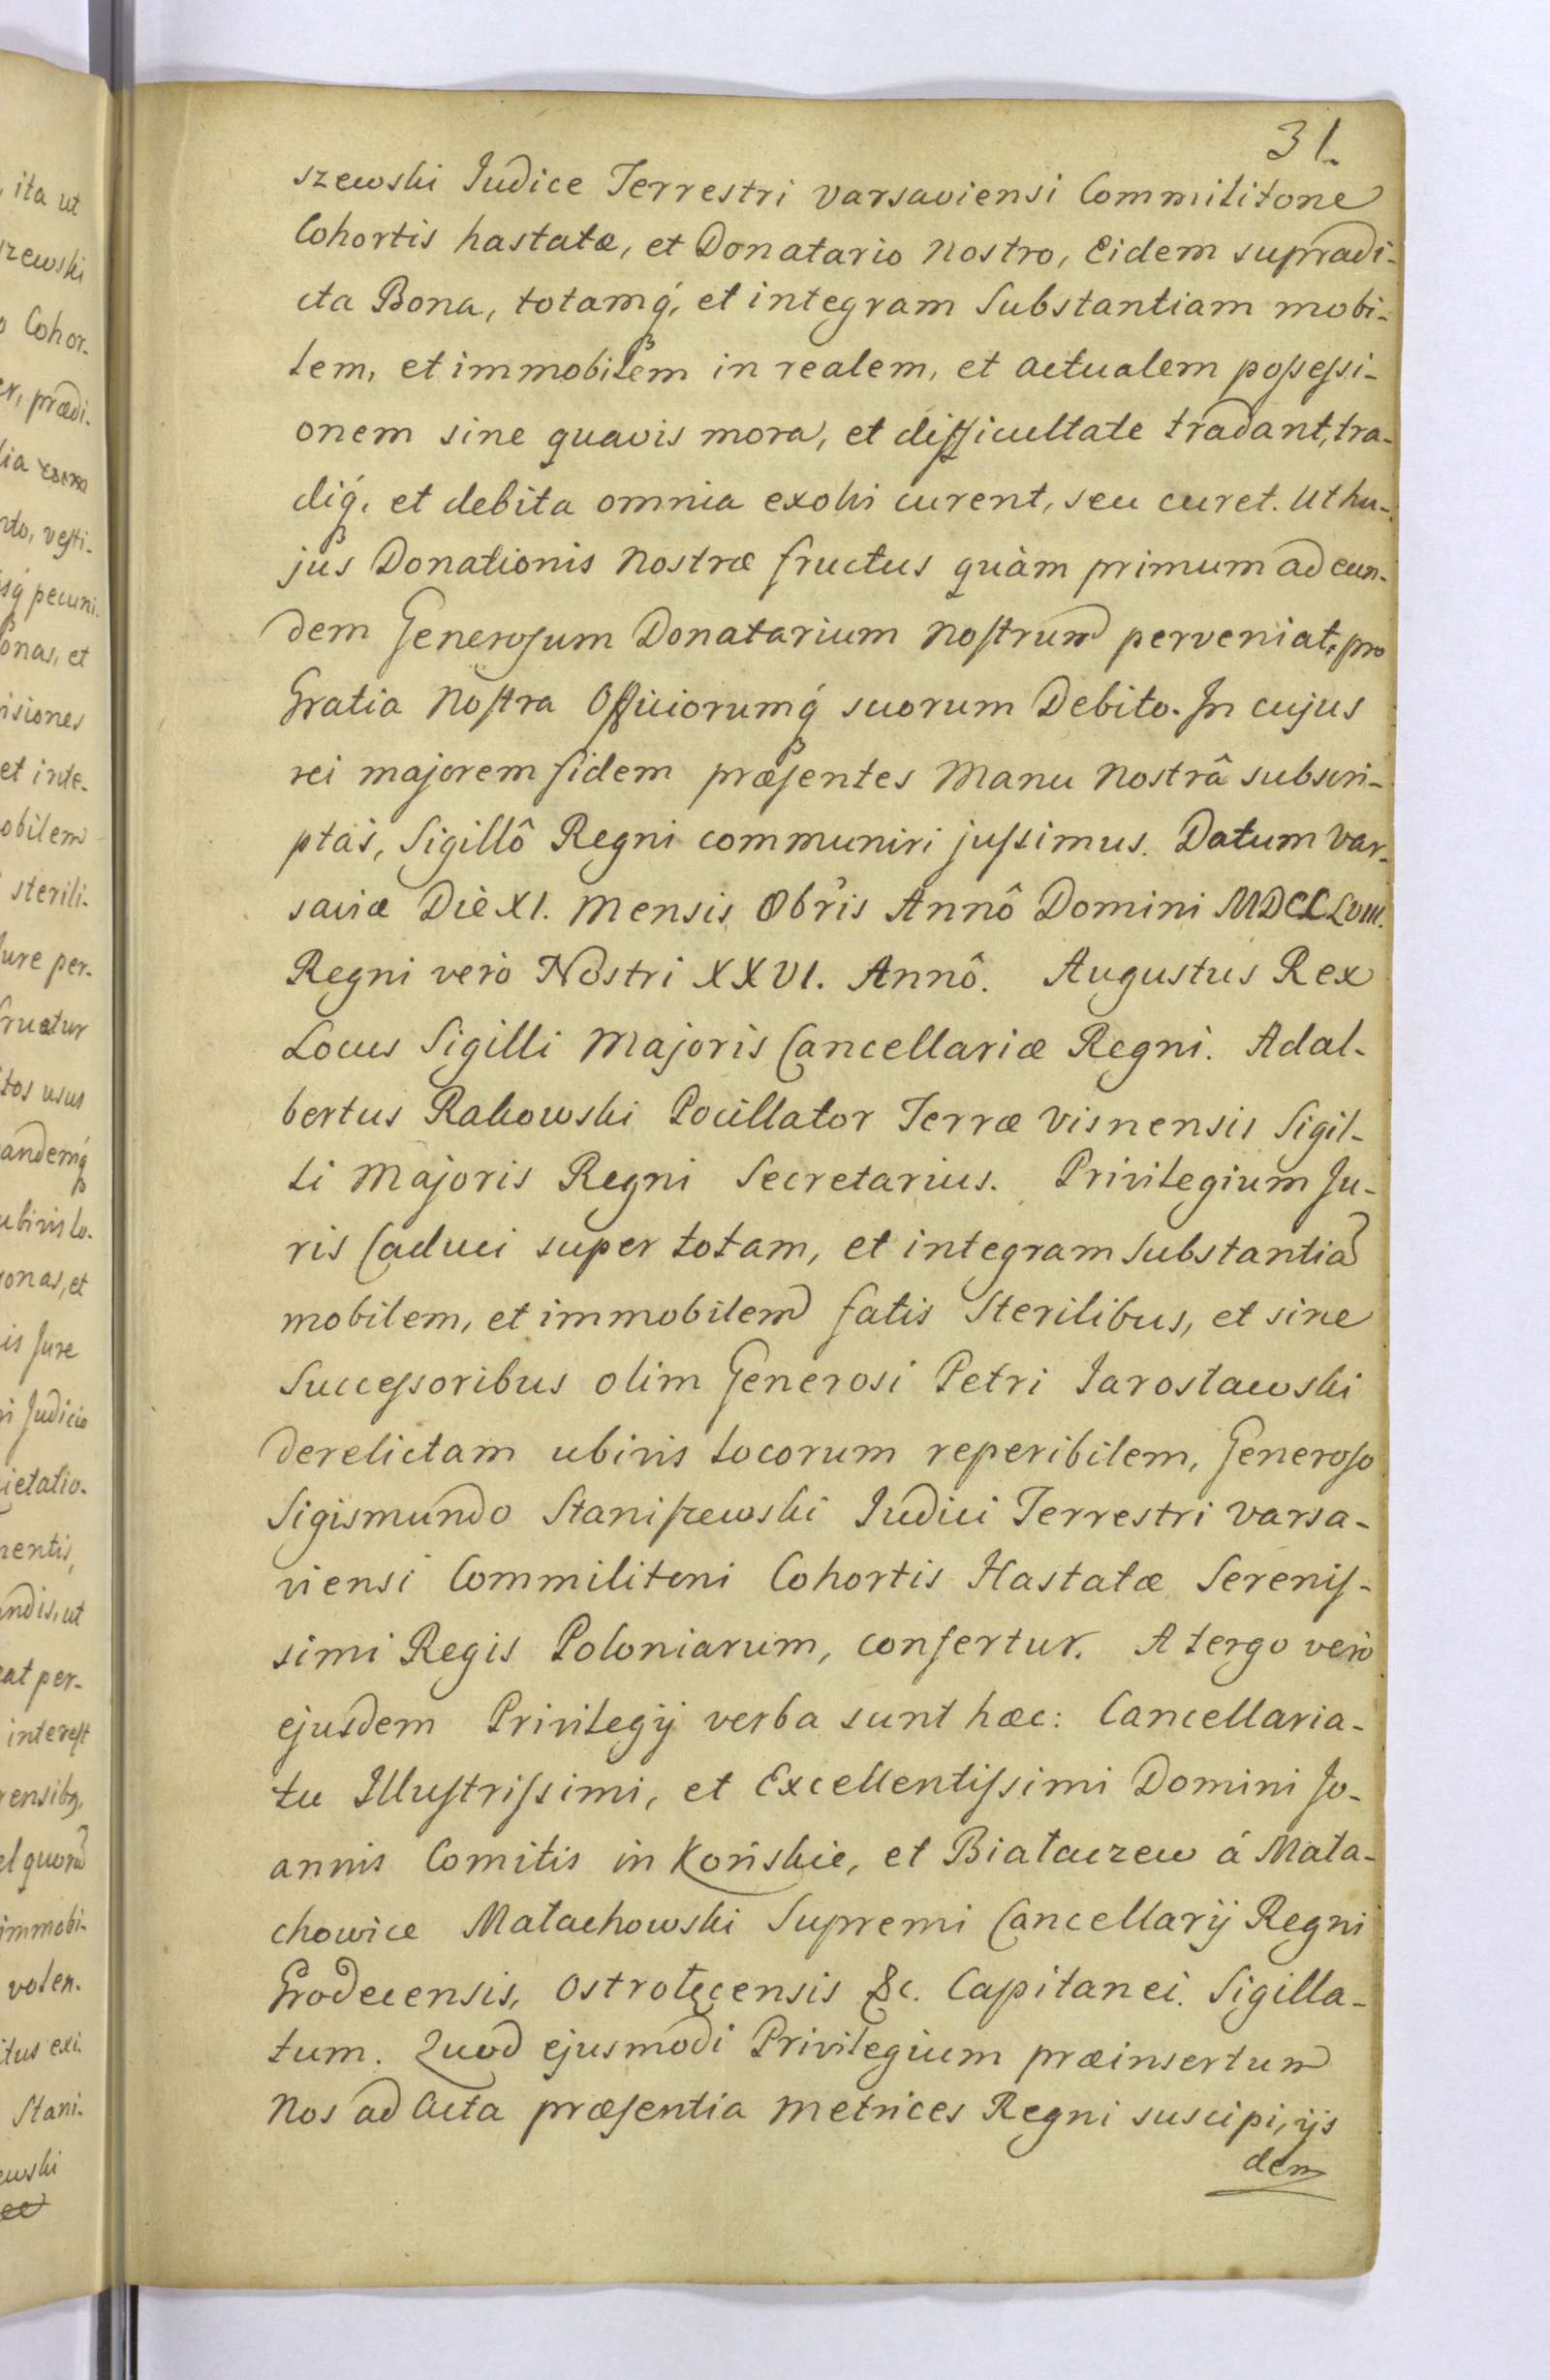 31.
szewski Judice Terrestri Varsaviensi Commilitone
Cohortis hastatæ, et Donatario Nostro, Eidem supradi-
cta Bona, totamq́, et integram Substantiam mobi-
lem, et immobilem in realem, et actualem poſseſsi-
onem sine quavis mora, et difficultate tradant, tra-
diq́, et debita omnia exolvi curent, seu curet. Ut hu-
jus Donationis Nostræ fructus quàm primum ad eun-
dem Generoſum Donatarium Noſtrum perveniat, pro
Gratia Noſtra Officiorumq́ suorum Debito. In cujus
rei majorem fidem præſentes Manu Nostrâ subscri-
ptas, Sigillô Regni communiri juſsimus. Datum Var-
saviæ Diè XI. Mensis 8br̃is Annô Domini MDCCLVIII.
Regni verò Nostri XXVI. Annô. Augustus Rex
Locus Sigilli Majoris Cancellariæ Regni. Adal-
bertus Rakowski Pocillator Terræ Visnensis Sigil-
li Majoris Regni Secretarius. Privilegium Ju-
ris Caduci super totam, et integram Substantiã
mobilem, et immobilem fatis Sterilibus, et sine
Succeſsoribus olim Generosi Petri Jarosławski
derelictam ubivis locorum reperibilem, Generoſo
Sigismundo Staniſzewski Judici Terrestri Varsa-
viensi Commilitoni Cohortis Hastatæ Sereniſ-
simi Regis Poloniarum, confertur. A tergo verò
ejusdem Privilegij verba sunt hæc: Cancellaria-
tu Illuſtriſsimi, et Excellentiſsimi Domini Jo-
annis Comitis in Końskie, et Białaczew á Mała-
chowice Małachowski Supremi Cancellarij Regni
Grodecensis, Ostrołęcensis &c. Capitanei. Sigilla-
tum. Quod ejusmodi Privilegium præinsertum
Nos ad Acta præſentia Metrices Regni suscipi, ijs
dem
, ita ut
szewski
o Cohor-
er, prædi-
lia
nto, veſti-
isq́ pecuni
onas, et
isiones
et inte-
obilem
sterili-
Jure per-
fruatur
itos usus
eandemq́
ubivis lo-
onas, et
is Jure
ri Judicio
ietatio-
mentis,
andis, ut
eat per-
intereſt
el quorũ
immobi-
volen-
itus exi-
Stani-
ewski